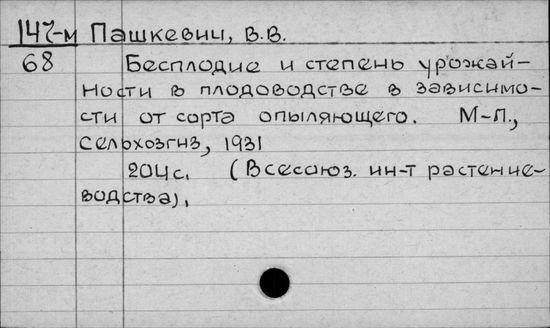 147-м Пашкевич, В.В.
68 Бесплодие и степень урожай-
ности в плодоводстве в зависимо-
сти от сорта опыляющего. М-Л.,
Сельхозгиз, 1931
204 с. (Всесоюз. ин-т растение-
водства).